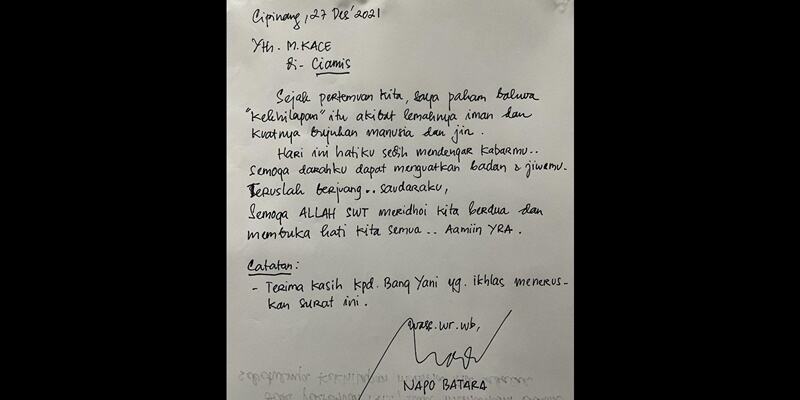 Cipinang, 27 Des' 2021
Yth. M. KACE
di- Ciamis
Sejak pertemuan kita, saya paham bahwa
"kekhilapan" itu akibat lemahnya iman dan
kuatnya bujukan manusia dan jin.
Hari ini hatiku sedih mendengar kabarmu..
Semoga darahku dapat menguatkan badan & jiwamu.
Teruslah berjuang.. saudaraku,
Semoga ALLAH SWT meridhoi kita berdua dan
membuka hati kita semua.. Aamiin YRA.
Catatan:
- Terima kasih kpd. Bang Yani yg. ikhlas menerus-
kan surat ini.
wass.wr.wb,
NAPO BATARA